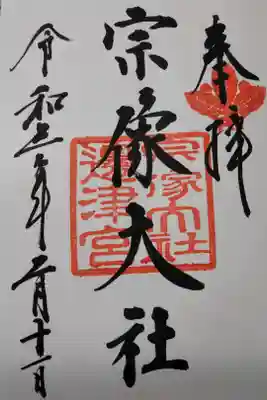 奉拝
宗像大社
宗像大社
邊津宮
令和五年二月十一日